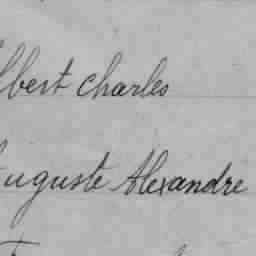 Albert Charles
Auguste Alexandre